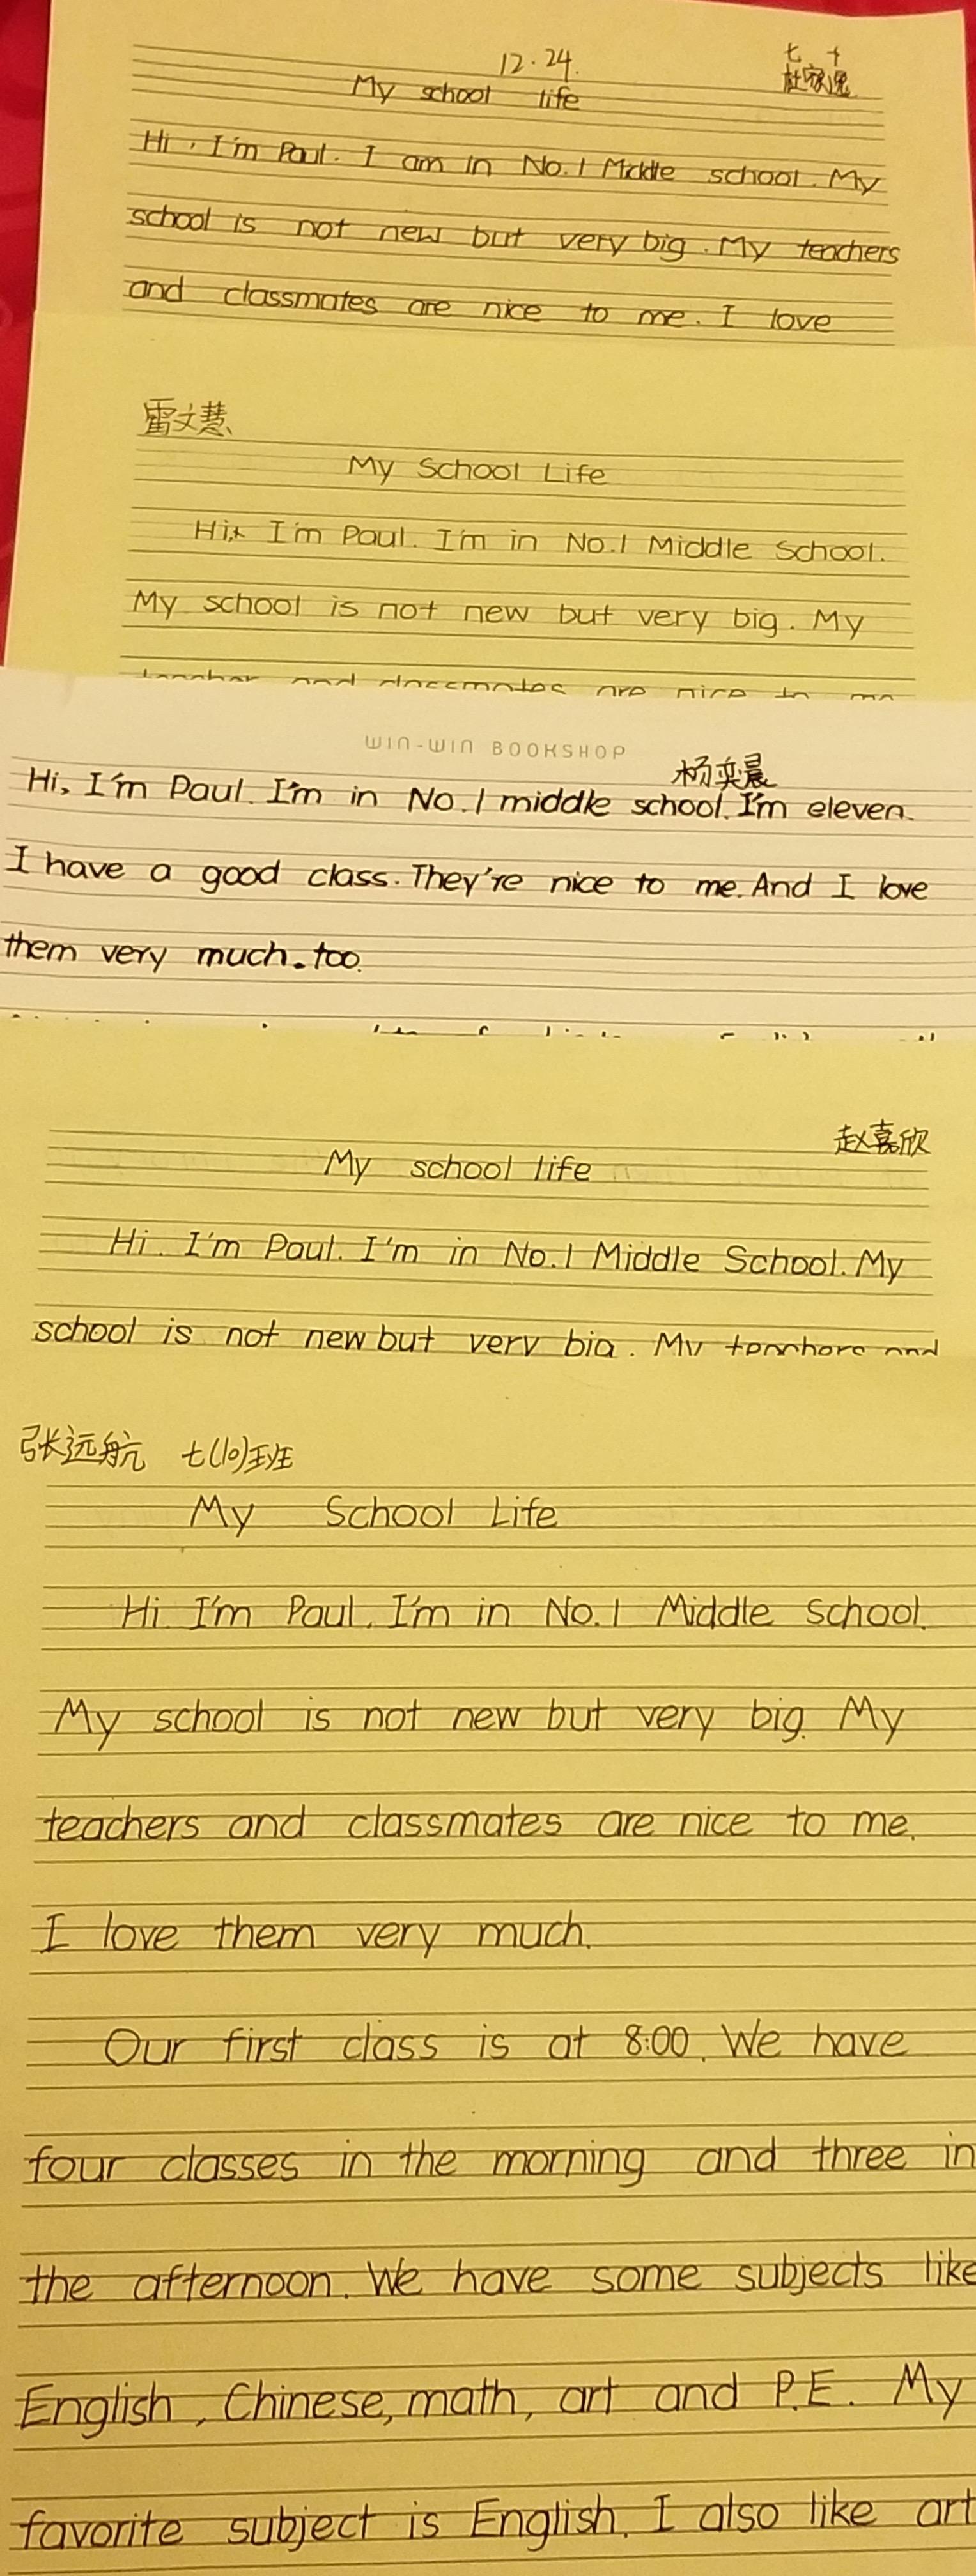 12.24.
七 十
My school life
杜家逸
Hi, I'm Paul. I am in No.1 Middle school. My
school is not new but very big. My teachers
and classmates are nice to me. I love
雷文慧
My School Life
Hi, I'm Paul. I'm in No.1 Middle School.
My school is not new but very big. My
teacher and classmates are nice to me
WIN-WIN BOOKSHOP
杨奕晨
Hi, I'm Paul. I'm in No.1 middle school. I'm eleven.
I have a good class. They're nice to me. And I love
them very much.too.
赵嘉欣
My school life
Hi. I'm Paul. I'm in No.1 Middle School. My
school is not new but very big. My teachers and
张远航 七(10)班
My School Life
Hi. I'm Paul. I'm in No.1 Middle School.
My school is not new but very big. My
teachers and classmates are nice to me.
I love them very much.
Our first class is at 8:00. We have
four classes in the morning and three in
the afternoon. We have some subjects like
English, Chinese, math, art and P.E. My
favorite subject is English. I also like art